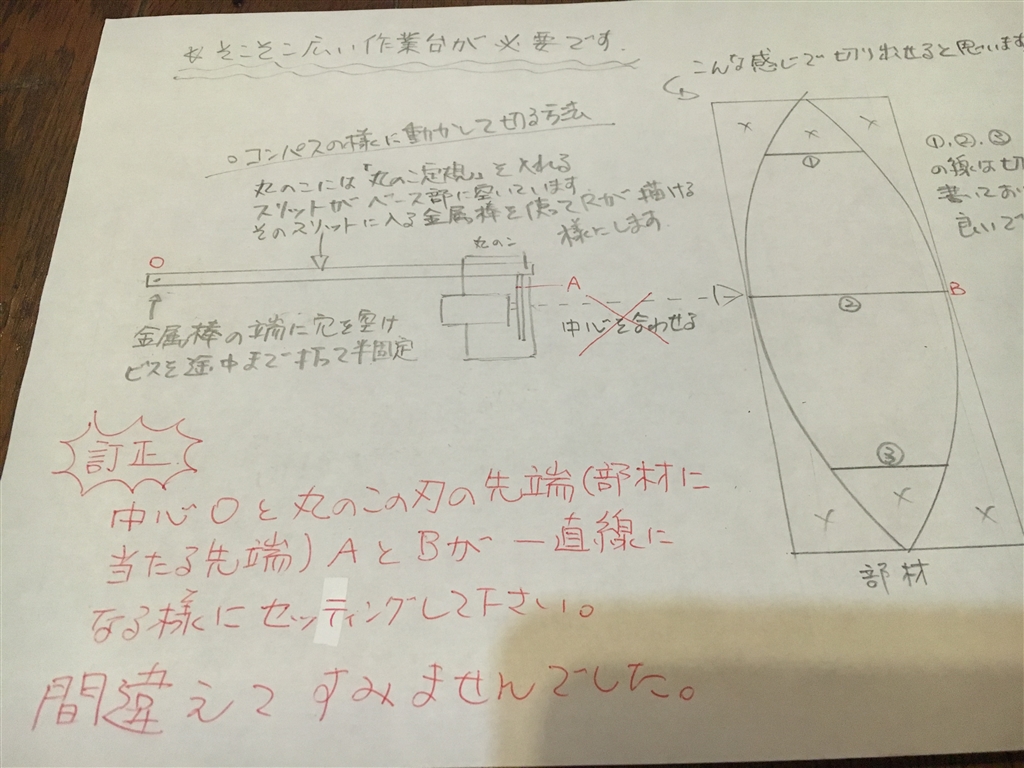 ＊そこそこ広い作業台が必要です.
こんな感じで切り出せると思います
○コンパスの様に動かして切る方法
丸のこには「丸のこ定規」を入れる
スリットがベース部に空いています
そのスリットに入る金属棒を使ってRが描ける
様にします.
①.②.③
の線は切
書いてお
良いで
丸のこ
O
A
B
中心を合わせる
金属棒の端に穴を空け
ビスを途中まで打って半固定
×
×
×
①
②
③
×
×
×
部材
訂正
中心Oと丸のこの刃の先端(部材に
当たる先端)AとBが一直線に
なる様にセッティングして下さい。
間違えてすみませんでした。